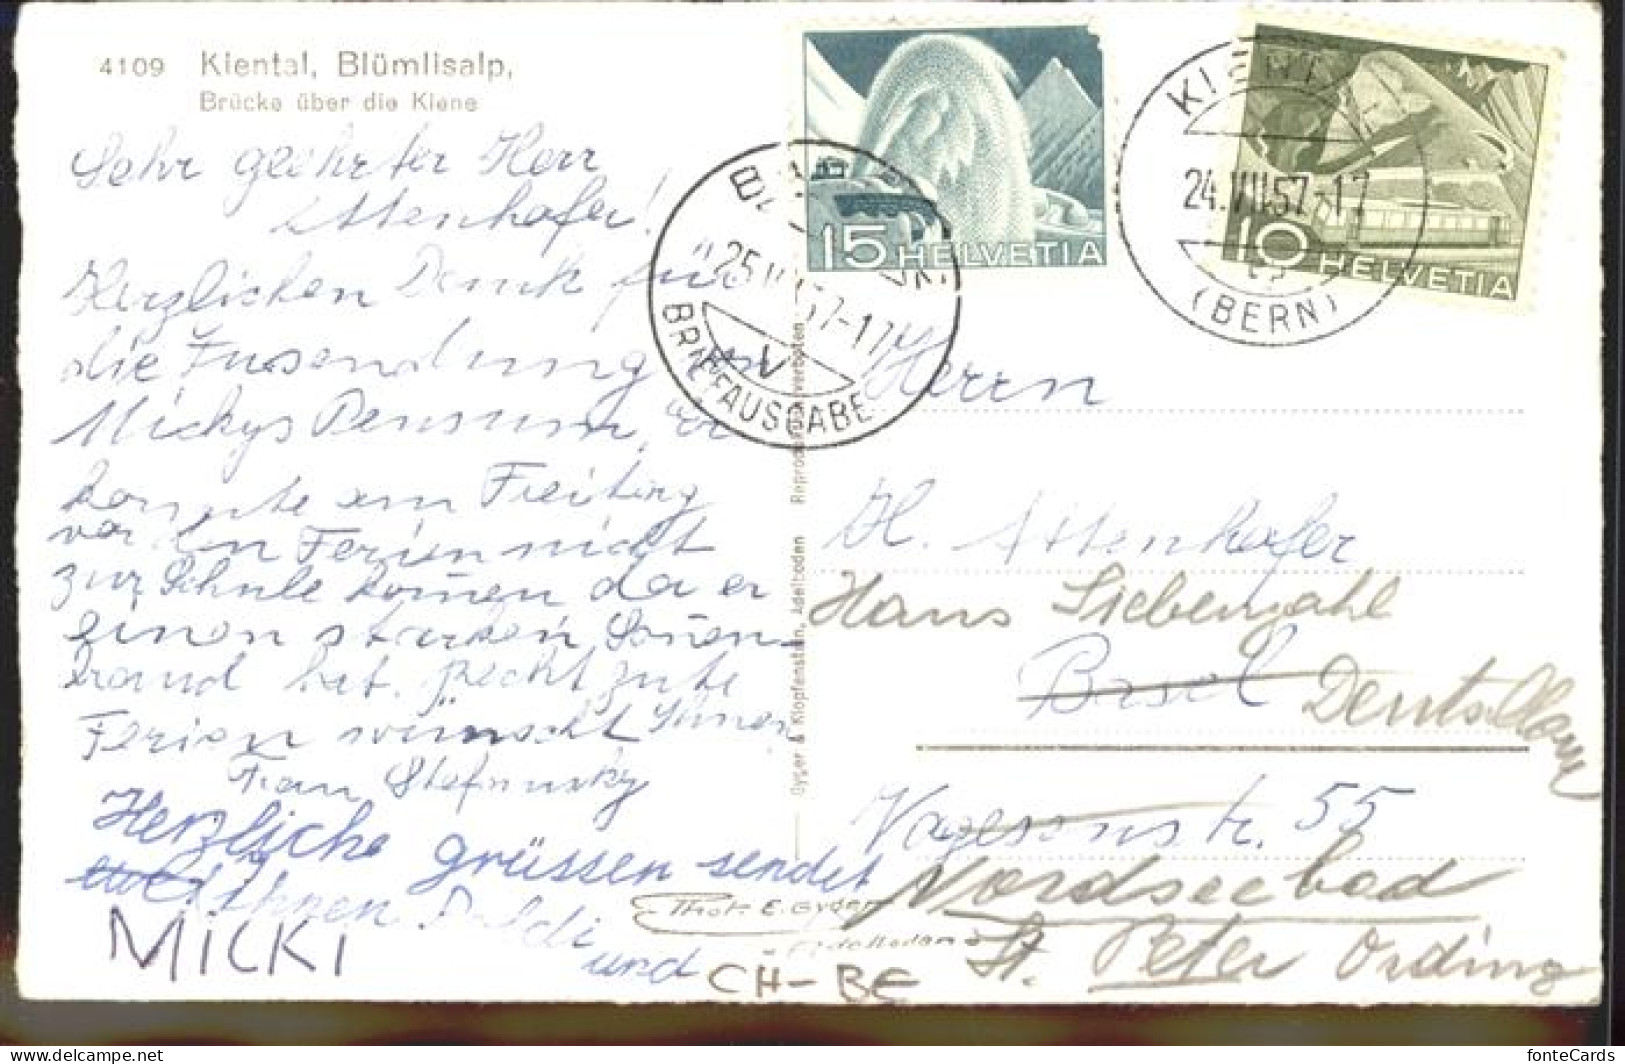 4109 Kiental, Blümlisalp,
Brücke über die Kiene
Sehr geehrter Herr
Attenhofer!
Herzlichen Dank für
die Zusendung von
Mickys Pensum, er
konnte am Freitag
vor den Ferien nicht
zur Schule kom̄en da er
einen starken Son̄en-
brand hat. Recht gute
Ferien wünscht Ihnen
Frau
Herzliche grüssen sendet
ihnen
und
MICKI
Phot. E. Gyger
Adelboden
CH-BE
Gyger & Klopfenstein, Adelboden Reproduktion verboten
15 HELVETIA
BRIEFAUSGABE
V
10 HELVETIA
KIENTAL
24.VII.57-17
(BERN)
Herrn
H. Attenhofer
Hans Siebenzahl
Basel Deutschland
Vogesenstr. 55
Nordseebad
St. Peter Ording
fonteCards